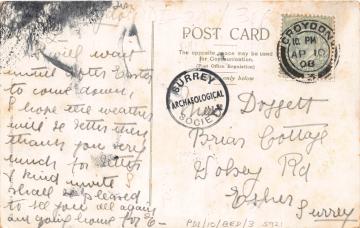 I will wait
until after Easter
to come down,
I hope the weather
will be better then
thank you very
much for letter
& kind invite I
shall be pleased
to see you all again
am going home for E-
POST CARD
The opposite space may be used
for Communication.
(Post Office Regulation)
only below
CROYDON
10. PM
AP 10
08
SURREY
ARCHAEOLOGICAL
SOCIETY
Doggett
Briar Cottage
Wolsey Rd
Esher
Surrey